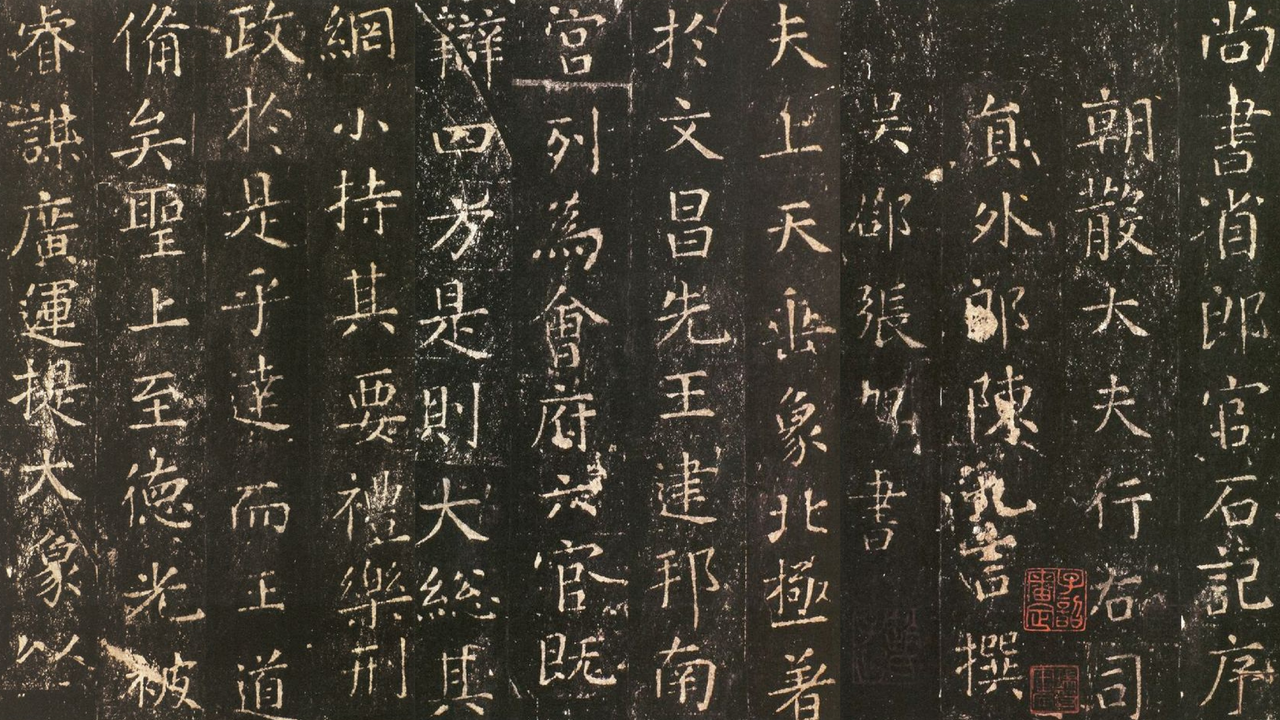 尚書省郎官石記序
朝散大夫行右司
員外郎陳九言撰
吳郡張旭書
夫上天垂象北極著
於文昌先王建邦南
宮列為會府六官既
辯四方是則大総其
網小持其要禮樂刑
政於是乎達而王道
備矣聖上至德光被
睿謀廣運提大象以